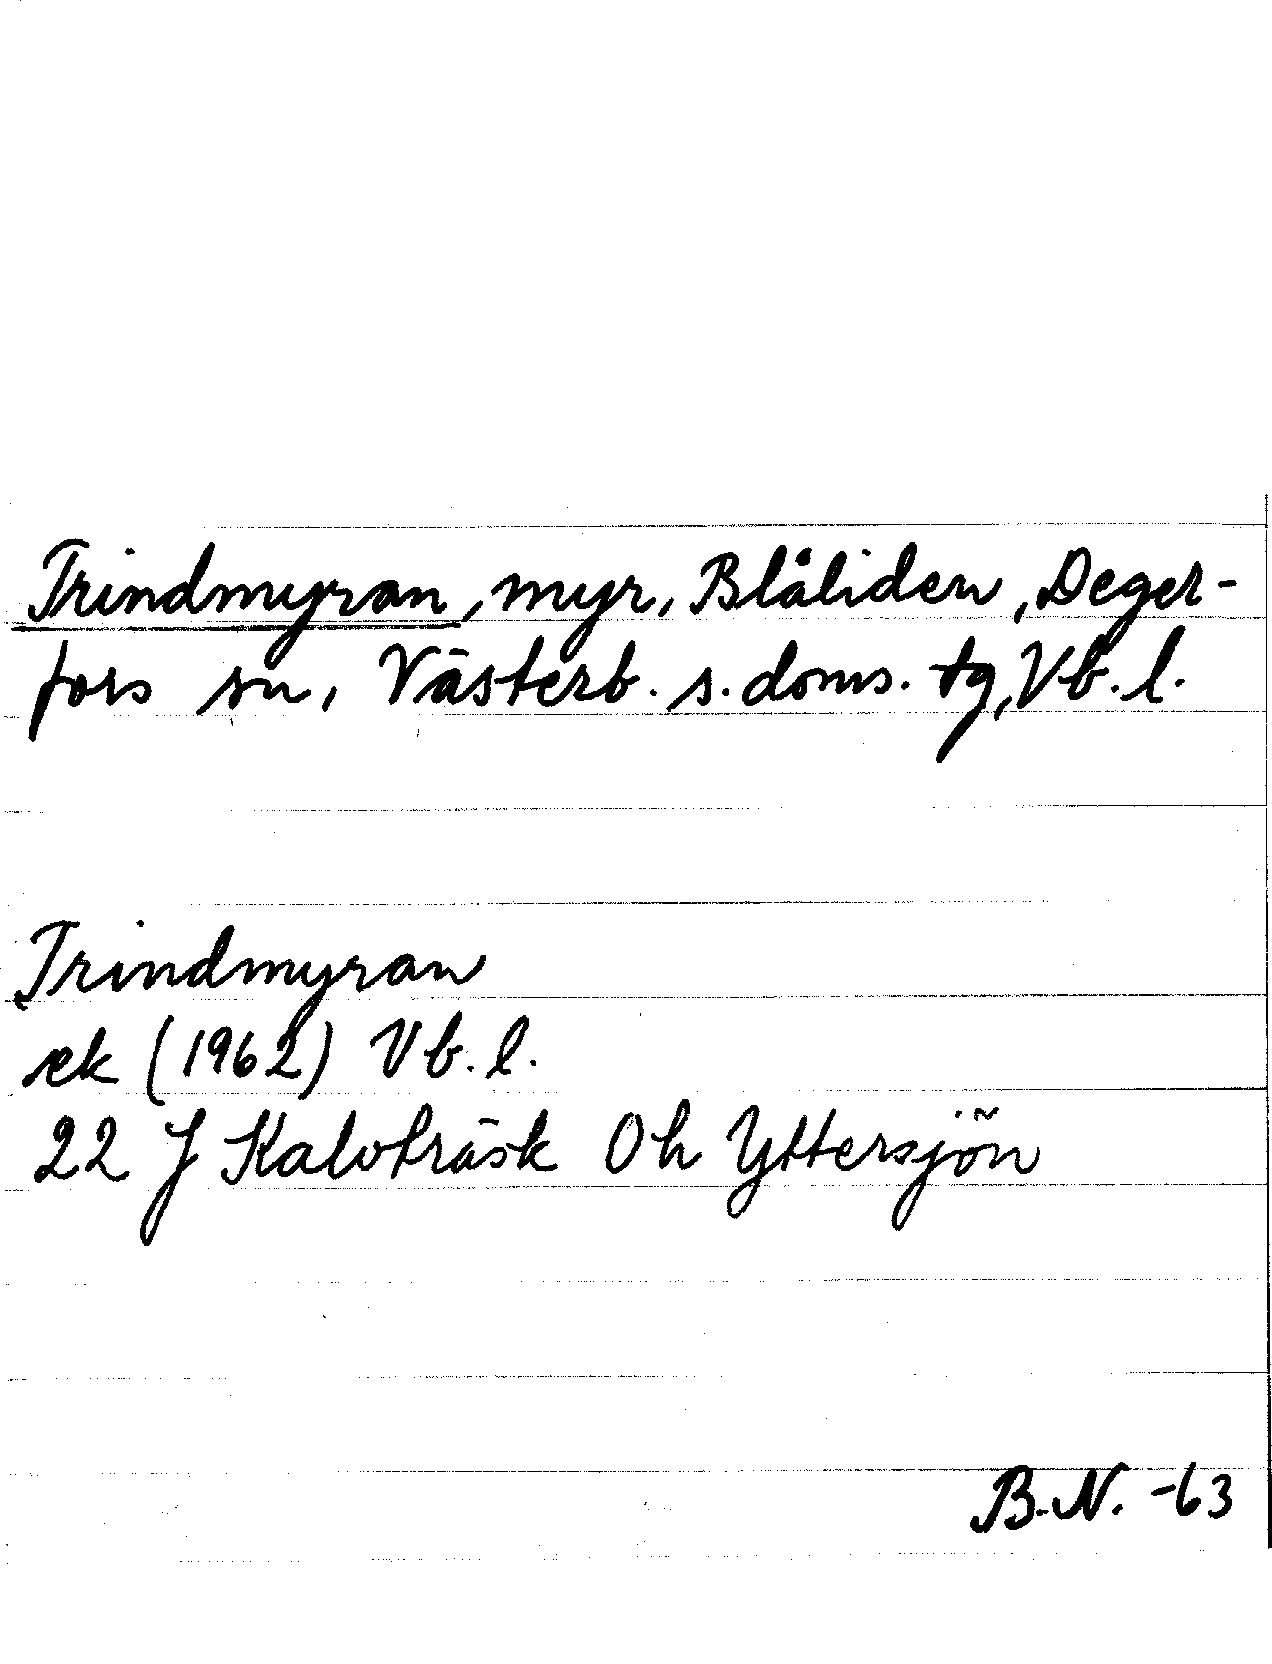 Trindmyran, myr, Blåliden, Deger-
fors sn, Västerb. s. doms. tg, Vb. l.
Trindmyran
ek (1962) Vb. l.
22 J Kalvträsk Oh Yttersjön
B.N. -63